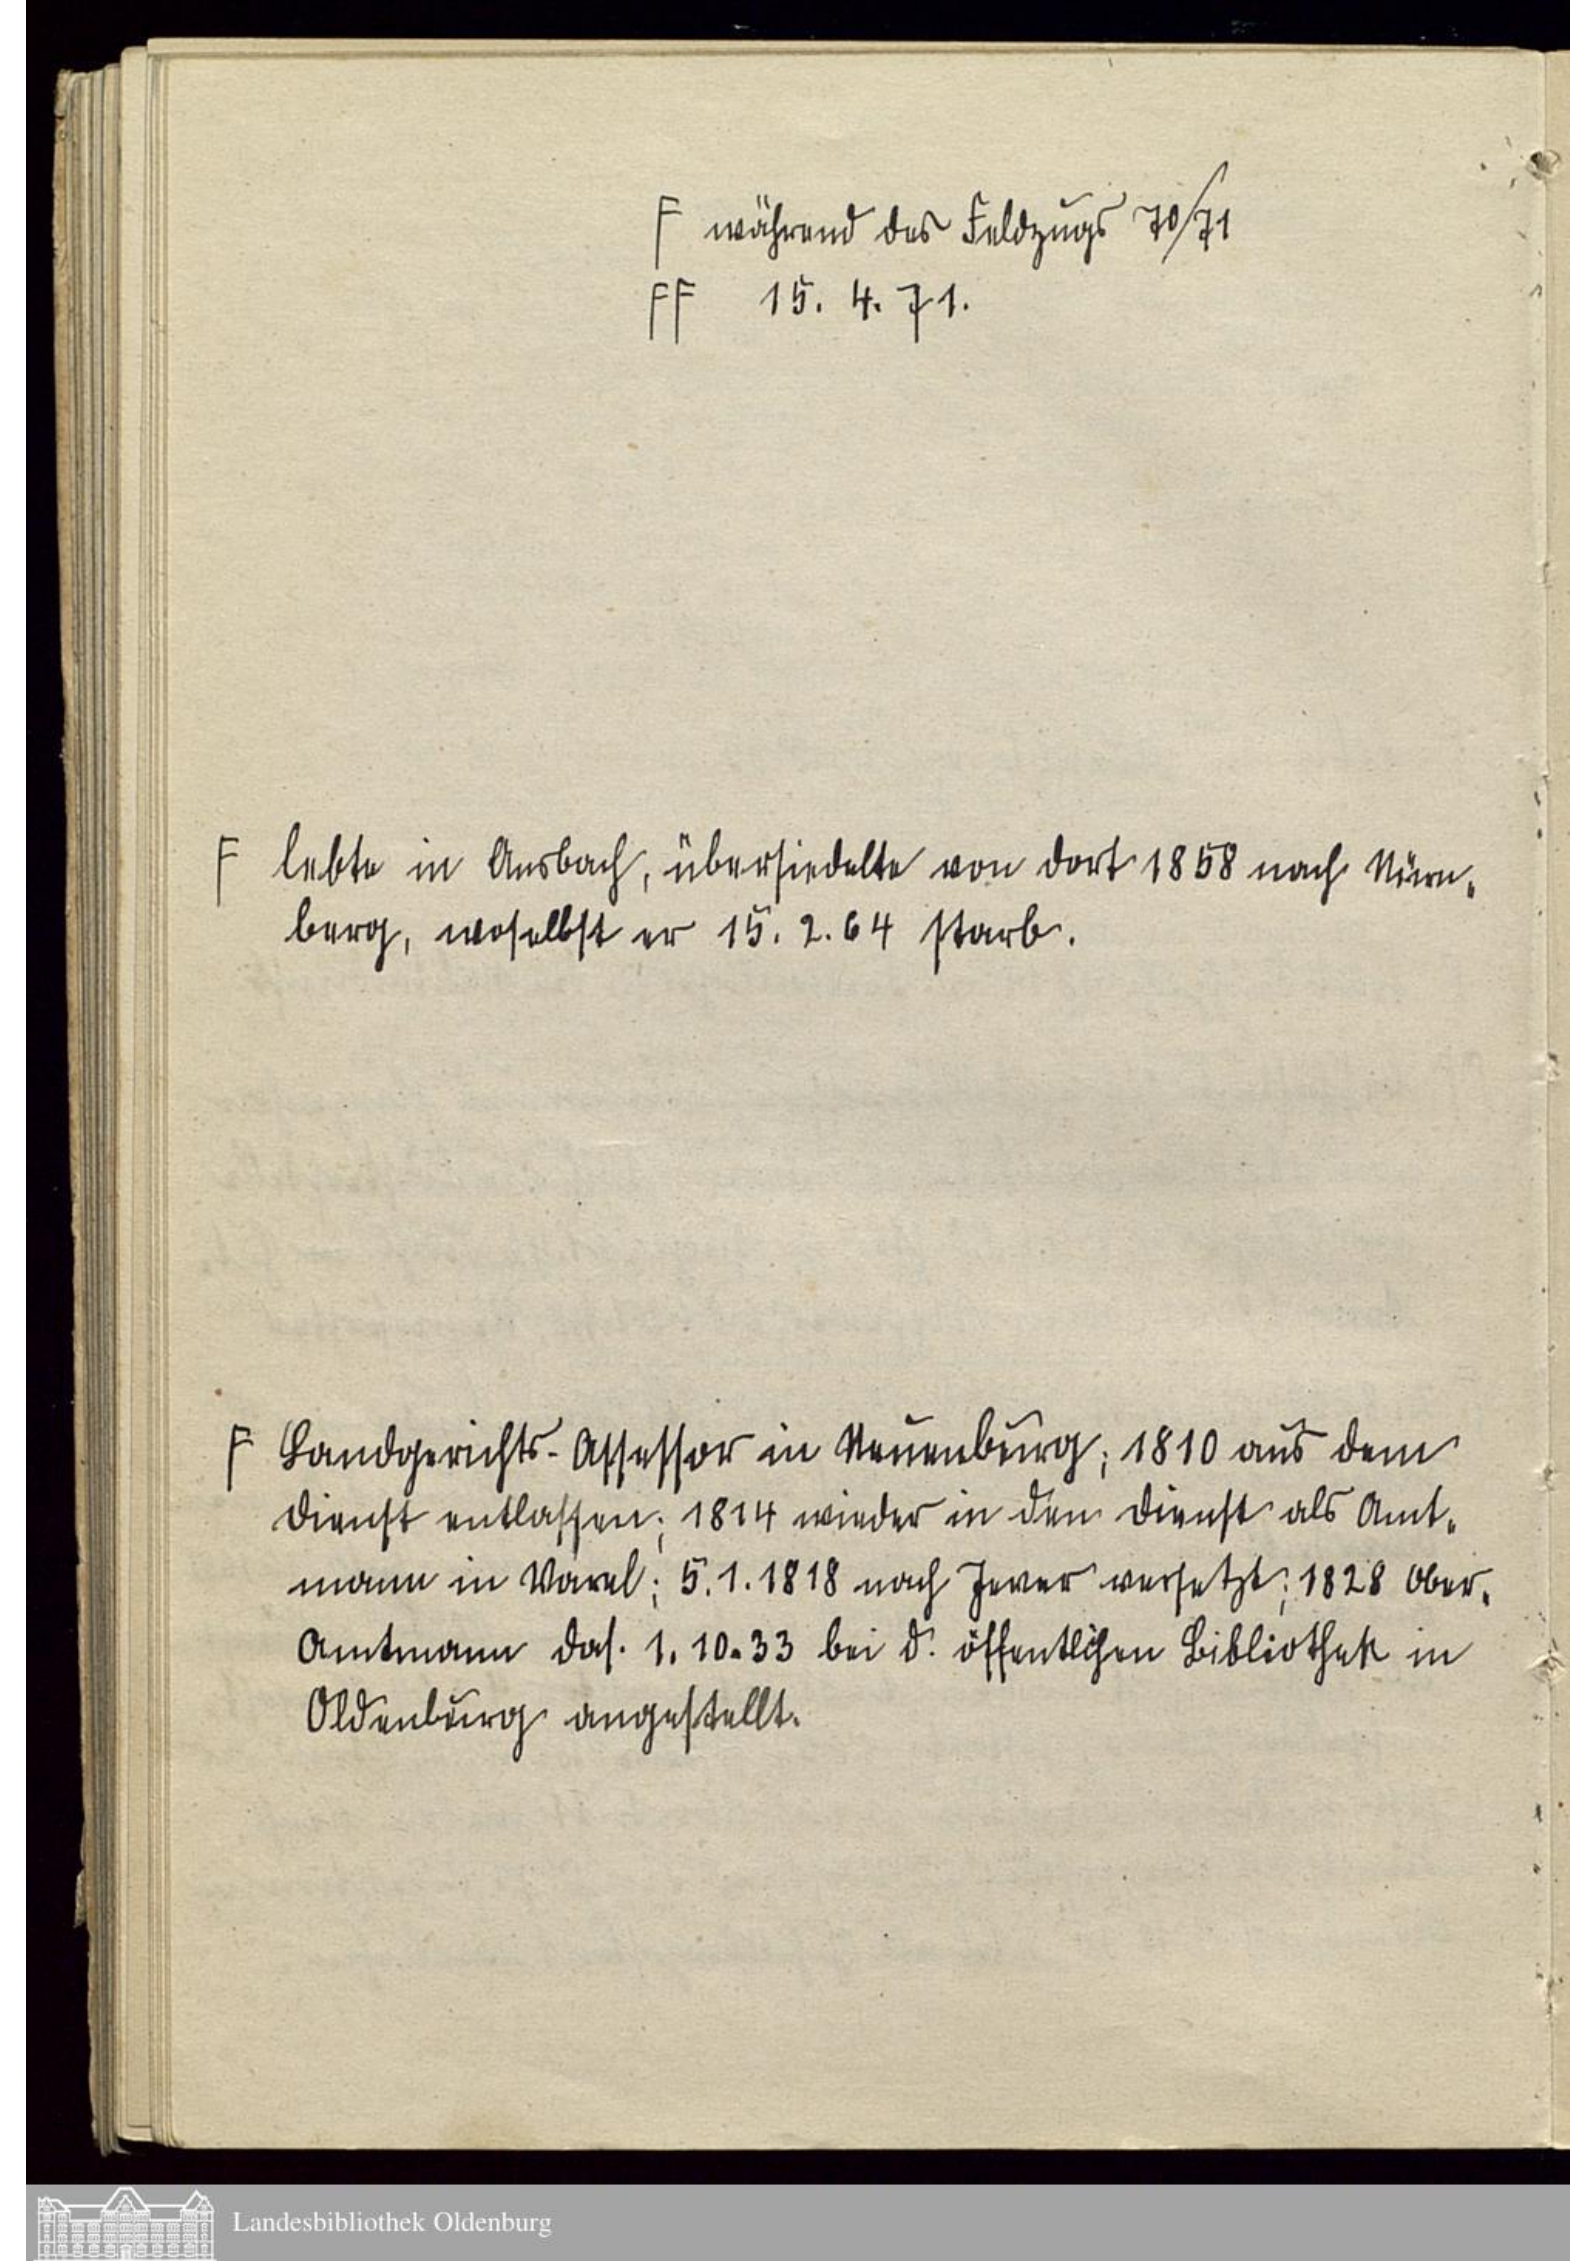 F während des Feldzugs 70/71
FF 15. 4. 71.
F lebte in Ansbach, übersiedelte von dort 1858 nach Nürn-
berg, woselbst er 15. 2. 64 starb.
F Landgerichts-Assessor in Neuenburg; 1810 aus dem
Dienst entlassen; 1814 wieder in den Dienst als Amt-
mann in Varel; 5. 1. 1818 nach Jever versetzt; 1828 Ober-
Amtmann das. 1. 10. 33 bei d. öffentlichen Bibliothek in
Oldenburg angestellt.
Landesbibliothek Oldenburg